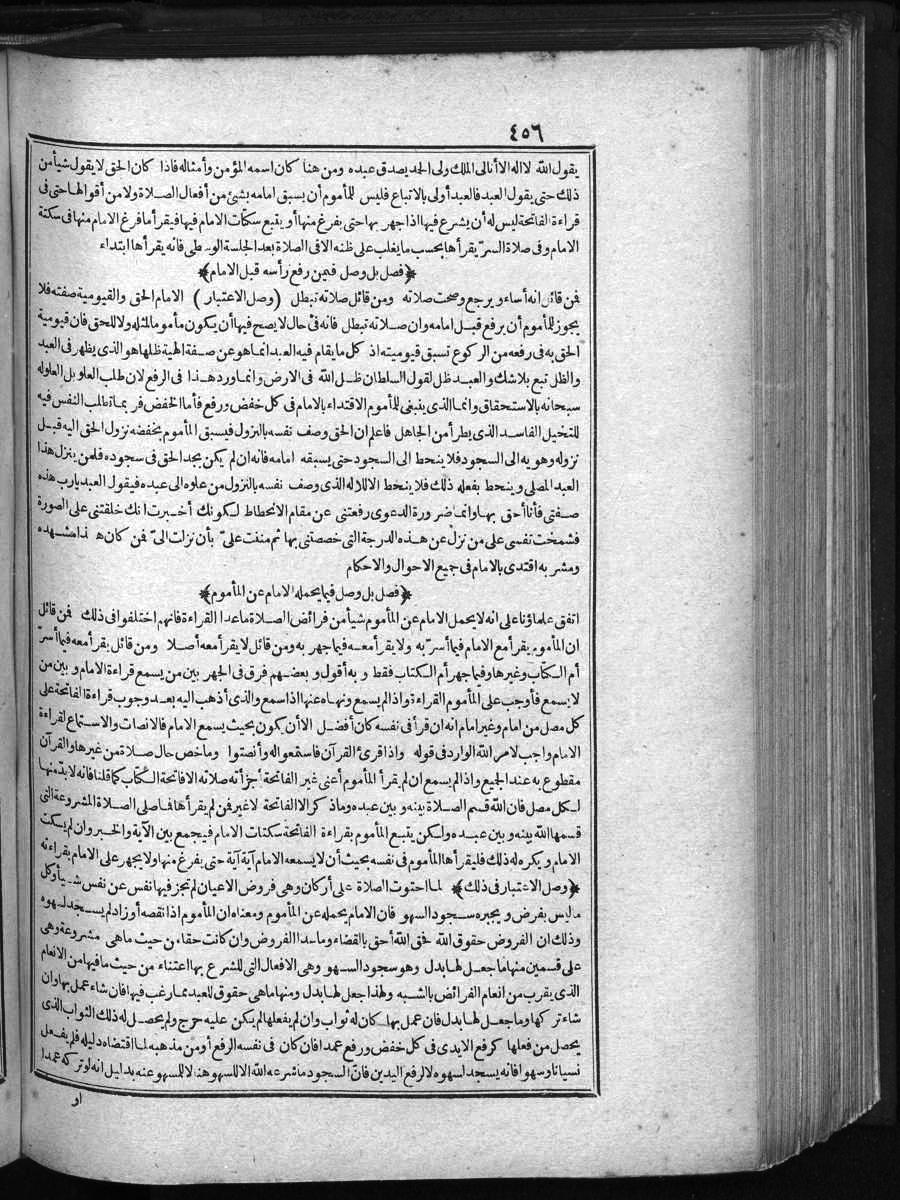 ٤٥٦
يقول الله لا اله الا أنا لى الملك ولى الحمد يصدق عبده ومن هنا كان اسمه المؤمن وأمثاله فاذا كان الحق لا يقول شيأ من
ذلك حتى يقول العبد فالعبد أولى بالاتباع فليس للمأموم أن يسبق امامه بشئ من أفعال الصلاة ولا من أقوالها حتى فى
قراءة الفاتحة ليس له أن يشرع فيها اذا جهر بها حتى يفرغ منها أو يتبع سكتات الامام فيها فيقرأ ما فرغ الامام منها فى سكتة
الامام وفى صلاة السرّ يقرأها بحسب ما يغلب على ظنه الا فى الصلاة بعد الجلسة الوسطى فانه يقرأها ابتداء
﴿فصل بل وصل فيمن رفع رأسه قبل الامام﴾
فمن قائل انه أساء ويرجع وصحت صلاته ومن قائل صلاته تبطل (وصل الاعتبار) الامام الحق والقيومية صفته فلا
يجوز للمأموم أن يرفع قبل امامه وان صلاته تبطل فانه فى حال لا يصح فيها أن يكون مأموما لمثله ولا للحق فان قيومية
الحق به فى رفعه من الركوع تسبق قيوميته اذ كل ما يقام فيه العبد انما هو عن صفة الهية ظلها هو الذى يظهر فى العبد
والظل تبع بلا شك والعبد ظل لقول السلطان ظل الله فى الارض وانما ورد هذا فى الرفع لان طلب العلو بل العلو له
سبحانه بالاستحقاق وانما الذى ينبغى للمأموم الاقتداء بالامام فى كل خفض ورفع فأما الخفض فربما تطلب النفس فيه
للتخيل الفاسد الذى يطرأ من الجاهل فاعلم ان الحق وصف نفسه بالنزول فيسبق المأموم بخفضه نزول الحق اليه قبل
نزوله وهو به الى السجود فلا ينحط الى السجود حتى يسبقه امامه فانه ان لم يكن يجد الحق فى سجوده فلمن ينزل هذا
العبد المصلى وينحط بفعله ذلك فلا ينحط الا للاله الذى وصف نفسه بالنزول من علوه الى عبده فيقول العبد يا رب هذه
صفتى فأنا أحق بها وانما ضرورة الدعوى رفعتنى عن مقام الانحطاط لكونك أخبرت انك خلقتنى على الصورة
فشمخت نفسى على من نزل عن هذه الدرجة التى خصصتنى بها ثم مننت علىّ بأن نزلت الىّ فمن كان هذا مشهده
ومشربه اقتدى بالامام فى جميع الاحوال والاحكام
﴿فصل بل وصل فيما يحمله الامام عن المأموم﴾
اتفق علماؤنا على انه لا يحمل الامام عن المأموم شيأ من فرائض الصلاة ما عدا القراءة فانهم اختلفوا فى ذلك فمن قائل
ان المأموم يقرأ مع الامام فيما أسرّ به ولا يقرأ معه فيما جهر به ومن قائل لا يقرأ معه أصلا ومن قائل يقرأ معه فيما أسرّ
أم الكتاب وغيرها وفيما جهر أم الكتاب فقط وبه أقول وبعضهم فرق فى الجهر بين من يسمع قراءة الامام وبين من
لا يسمع فأوجب على المأموم القراءة واذا لم يسمع ونهاه عنها اذا سمع والذى أذهب اليه بعد وجوب قراءة الفاتحة على
كل مصل من امام وغير امام انه ان قرأ فى نفسه كان أفضل الا أن يكون بحيث يسمع الامام فالانصات والاستماع لقراءة
الامام واجب لامر الله الوارد فى قوله واذا قرئ القرآن فاستمعوا له وأنصتوا وما خص حال صلاة من غيرها والقرآن
مقطوع به عند الجميع واذا لم يسمع ان لم يقرأ المأموم أعنى غير الفاتحة أجزأته صلاته الا فاتحة الكتاب كما قلنا فانه لا بدّ منها
لكل مصل فان الله قسم الصلاة بينه وبين عبده وما ذكر الا الفاتحة لا غير فمن لم يقرأها فما صلى الصلاة المشروعة التى
قسمها الله بينه وبين عبده ولكن يتبع المأموم بقراءة الفاتحة سكتات الامام فيجمع بين الآية والخبر وان لم يسكت
الامام ويكره له ذلك فليقرأها المأموم فى نفسه بحيث أن لا يسمعه الامام آية آية حتى يفرغ منها ولا يجهر على الامام بقراءته
﴿وصل الاعتبار فى ذلك﴾ لما احتوت الصلاة على أركان وهى فروض الاعيان لم تجز فيها نفس عن نفس شيأ وكل
ما ليس بفرض ويجبره سجود السهو فان الامام يحمله عن المأموم ومعناه ان المأموم اذا نقصه أو زاد لم يسجد لسهوه
وذلك ان الفروض حقوق الله فحق الله أحق بالقضاء وما عدا الفروض وان كانت حقا من حيث ما هى مشروعة وهى
على قسمين منها ما جعل لها بدل وهو سجود السهو وهى الافعال التى للشرع بها اعتناء من حيث ما فيها من الانعام
الذى يقرب من انعام الفرائض بالشبه ولهذا جعل لها بدل ومنها ما هى حقوق للعبد مما رغب فيها فان شاء عمل بها وان
شاء تركها وما جعل لها بدل فان عمل بها كان له ثواب وان لم يفعلها لم يكن عليه حرج ولم يحصل له ذلك الثواب الذى
يحصل من فعلها كرفع الايدى فى كل خفض ورفع عمدا فان كان فى نفسه الرفع أو من مذهبه لما اقتضاه دليله فلم يفعل
نسيانا وسهوا فانه يسجد لسهوه لا لرفع اليدين فان السجود ما شرعه الله الا للسهو هنا لا للمسهو عنه بدليل انه لو تركه عمدا
او